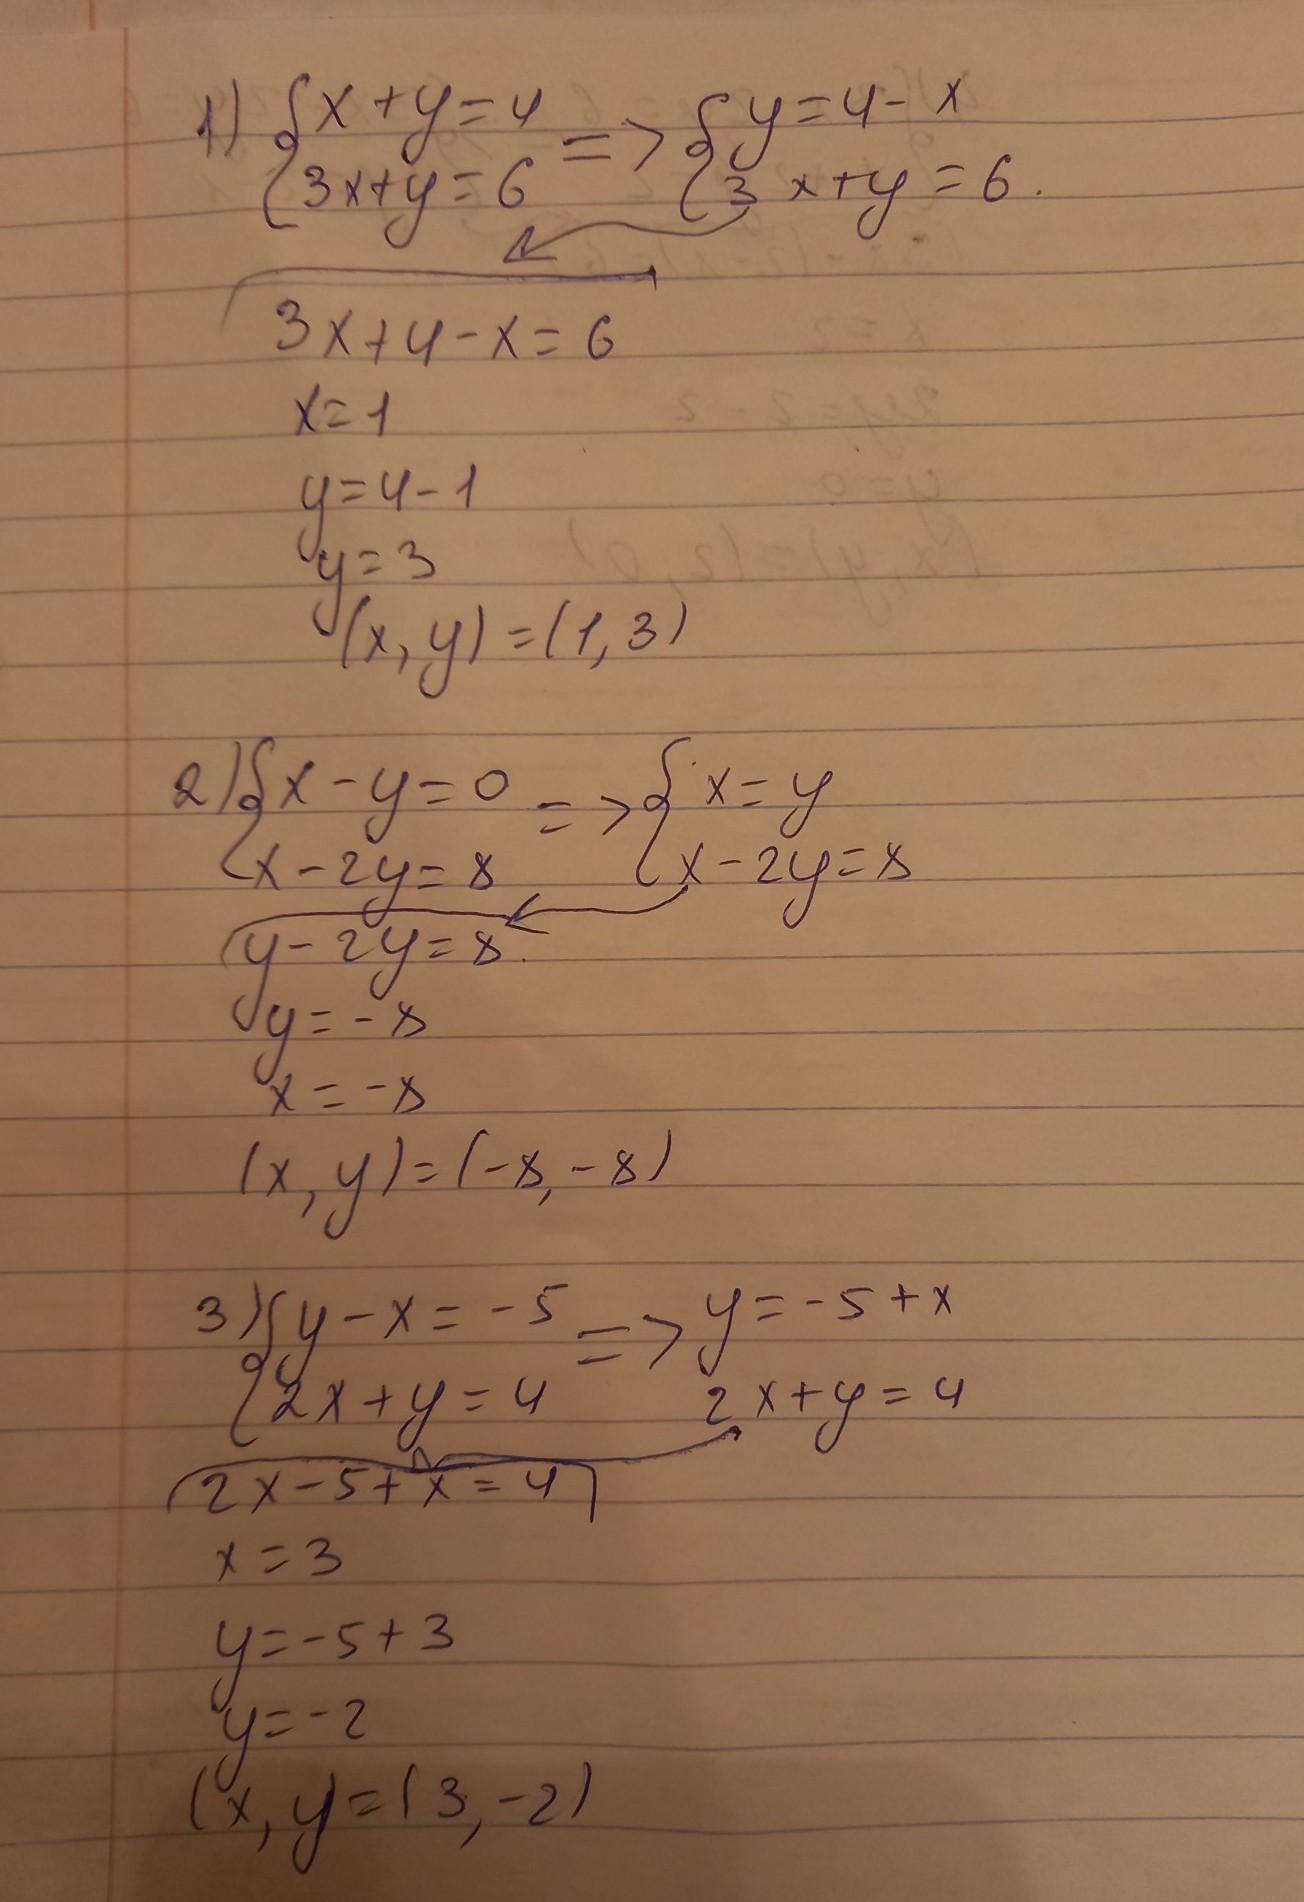 1) {x+y=4 => {y=4-x
{3x+y=6 {3x+y=6.
3x+4-x=6
x=1
y=4-1
y=3
(x,y)=(1,3)
2) {x-y=0 => {x=y
{x-2y=8 {x-2y=8
y-2y=8.
y=-8
x=-8
(x,y)=(-8,-8)
3) {y-x=-5 => y=-5+x
{2x+y=4 2x+y=4
2x-5+x=4
x=3
y=-5+3
y=-2
(x,y)=(3,-2)